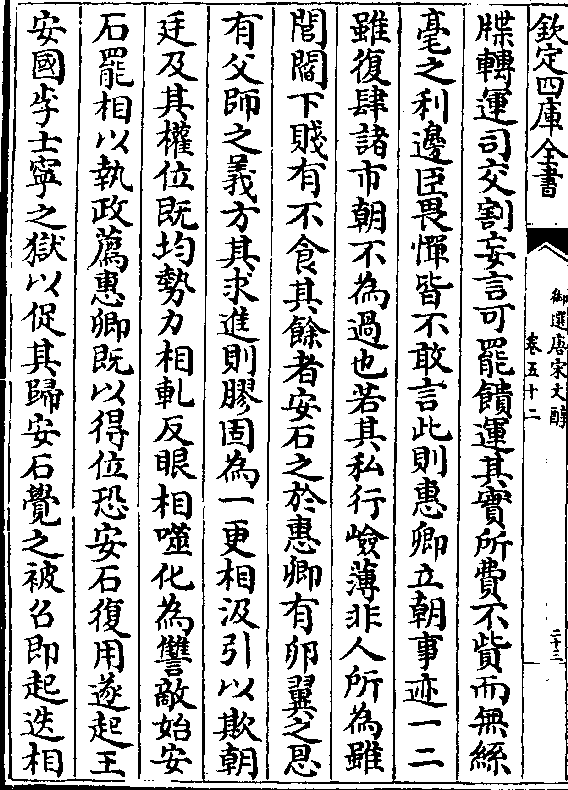 欽定四庫全書
御選唐宋文醇
卷五十二
二十三
牒轉運司交割妄言可罷饋運其實所費不貲而無絲
毫之利邊臣畏憚皆不敢言此則惠卿立朝事迹一二
雖復肆諸市朝不為過也若其私行險薄非人所為雖
閭閻下賤有不食其餘者安石之於惠卿有卵翼之恩
有父師之義方其求進則膠固為一更相汲引以欺朝
廷及其權位既均勢力相軋反眼相噬化為讐敵始安
石罷相以執政薦惠卿既以得位恐安石復用遂起王
安國李士寧之獄以促其歸安石覺之被召即起迭相